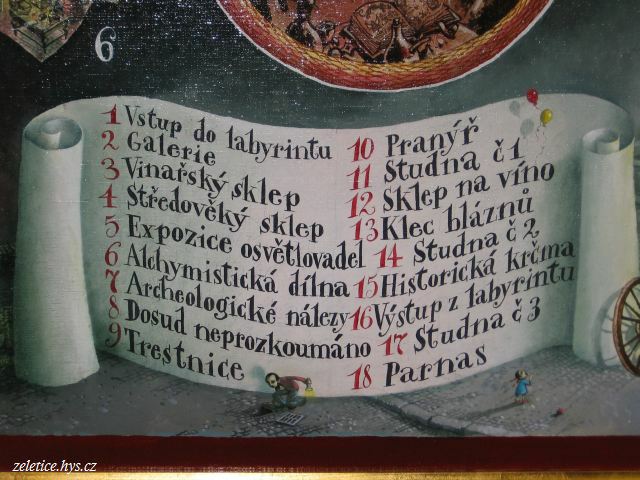 6
1 Vstup do labyrintu
2 Galerie
3 Vinařský sklep
4 Středověký sklep
5 Expozice osvětlovadel
6 Alchymistická dílna
7 Archeologické nálezy
8 Dosud neprozkoumáno
9 Trestnice
10 Pranýř
11 Studna č 1
12 Sklep na víno
13 Klec bláznů
14 Studna č 2
15 Historická krčma
16 Výstup z labyrintu
17 Studna č 3
18 Parnas
zeletice.hys.cz